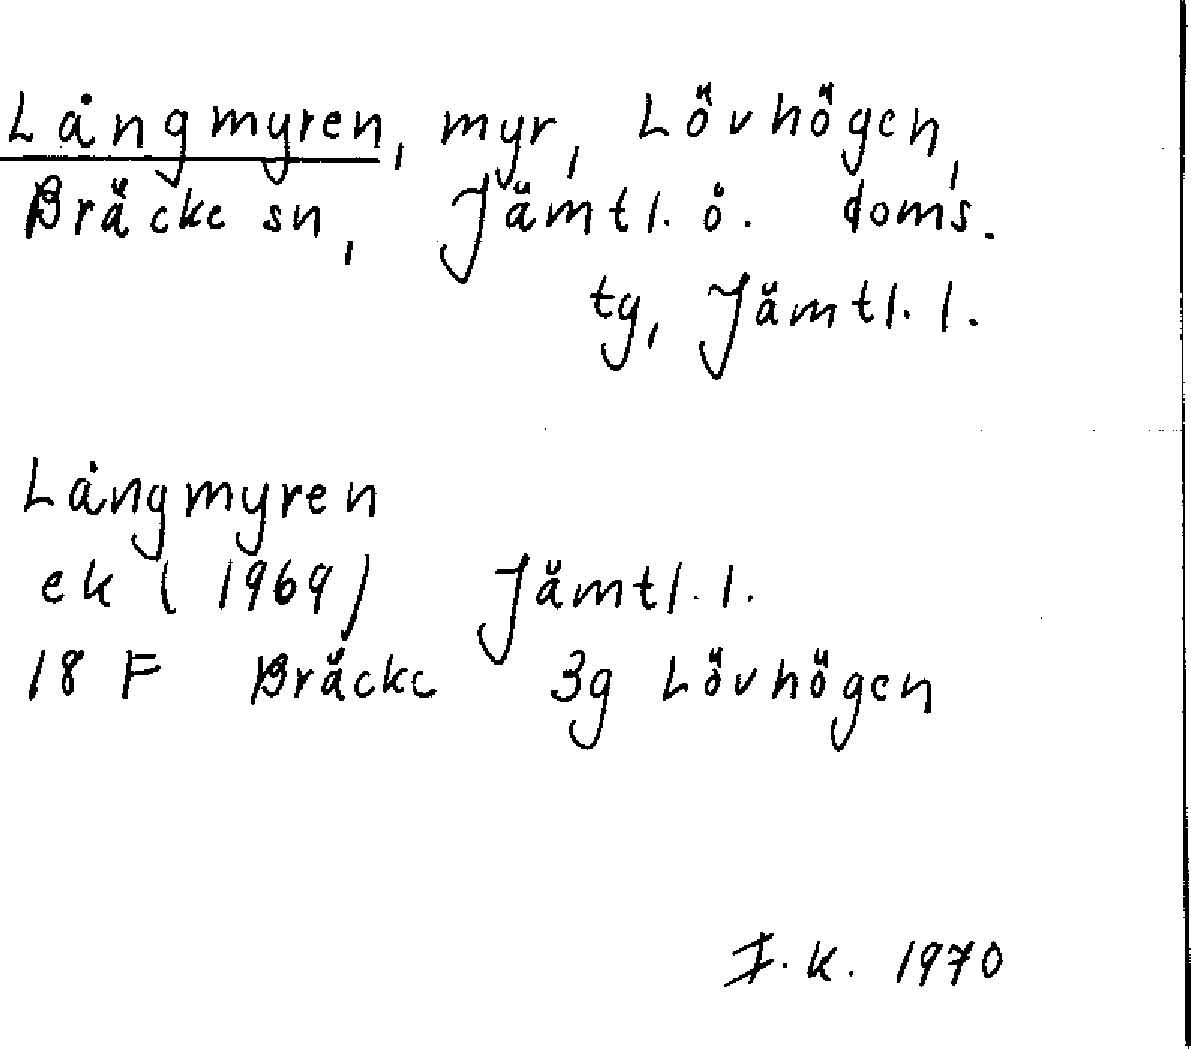 Långmyren, myr, Lövhögen,
Bräcke sn, Jämtl. ö. doms.
tg, Jämtl. l.
Långmyren
ek (1969) Jämtl. l.
18 F Bräcke 3g Lövhögen
I. K. 1970